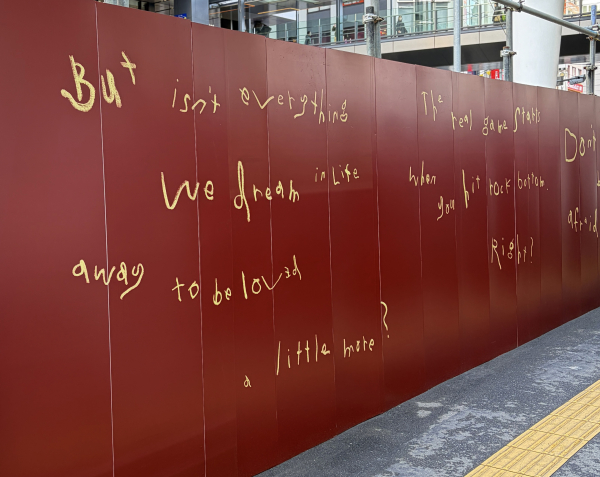 But isn't everything
we dream in Life
away to be loved
a little more?
The real game starts
when you hit rock bottom.
Right?
Don't
afraid